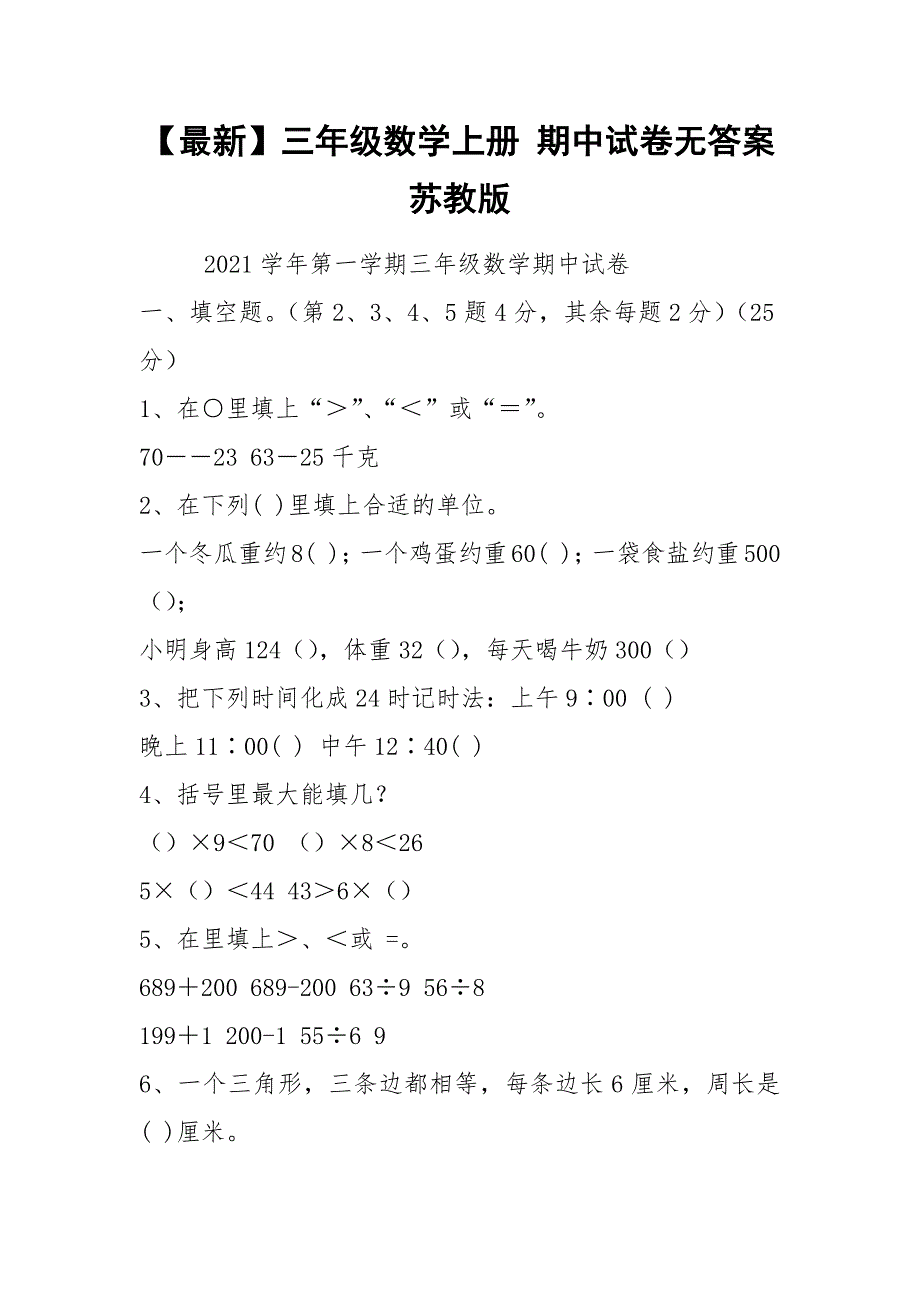 【最新】三年级数学上册 期中试卷无答案
苏教版
2021 学年第一学期三年级数学期中试卷
一、填空题。（第 2、3、4、5 题 4 分，其余每题 2 分）（25
分）
1、在〇里填上“＞”、“＜”或“＝”。
70－－23 63－25 千克
2、在下列( )里填上合适的单位。
一个冬瓜重约 8( )；一个鸡蛋约重 60( )；一袋食盐约重 500
（）；
小明身高 124（），体重 32（），每天喝牛奶 300（）
3、把下列时间化成 24 时记时法：上午 9∶00 ( )
晚上 11∶00( ) 中午 12∶40( )
4、括号里最大能填几？
（）×9＜70 （）×8＜26
5×（）＜44 43＞6×（）
5、在里填上＞、＜或 =。
689＋200 689-200 63÷9 56÷8
199＋1 200-1 55÷6 9
6、一个三角形，三条边都相等，每条边长 6 厘米，周长是
( )厘米。